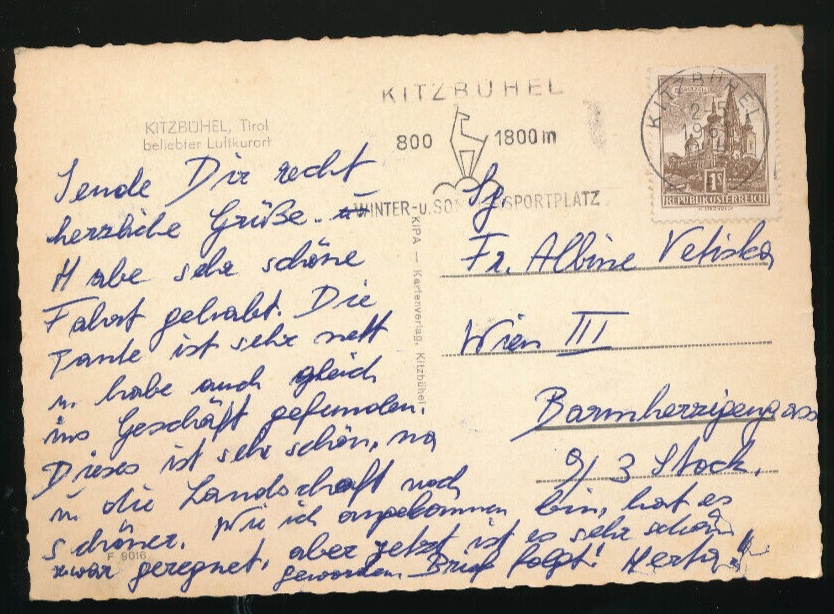 KITZBÜHEL, Tirol
beliebter Luftkurort
KITZBÜHEL
800 1800 m
WINTER-u.SO SPORTPLATZ
KITZBÜHEL
1S
REPUBLIK ÖSTERREICH
Sende Dir recht
herzliche Grüße.
Habe sehr schöne
Fahrt gehabt. Die
Tante ist sehr nett
u. habe auch gleich
ins Geschäft gefunden.
Dieses ist sehr schön, na
u. die Landschaft noch
schöner. Wie ich angekommen bin, hat es
zwar geregnet, aber jetzt ist es sehr schön
geworden. Brief folgt! Herta
Fr. Albine Vetiska
Wien III
Barmherzigengass
9/3 Stock.
KIPA — Kartenverlag, Kitzbühel
F 9016